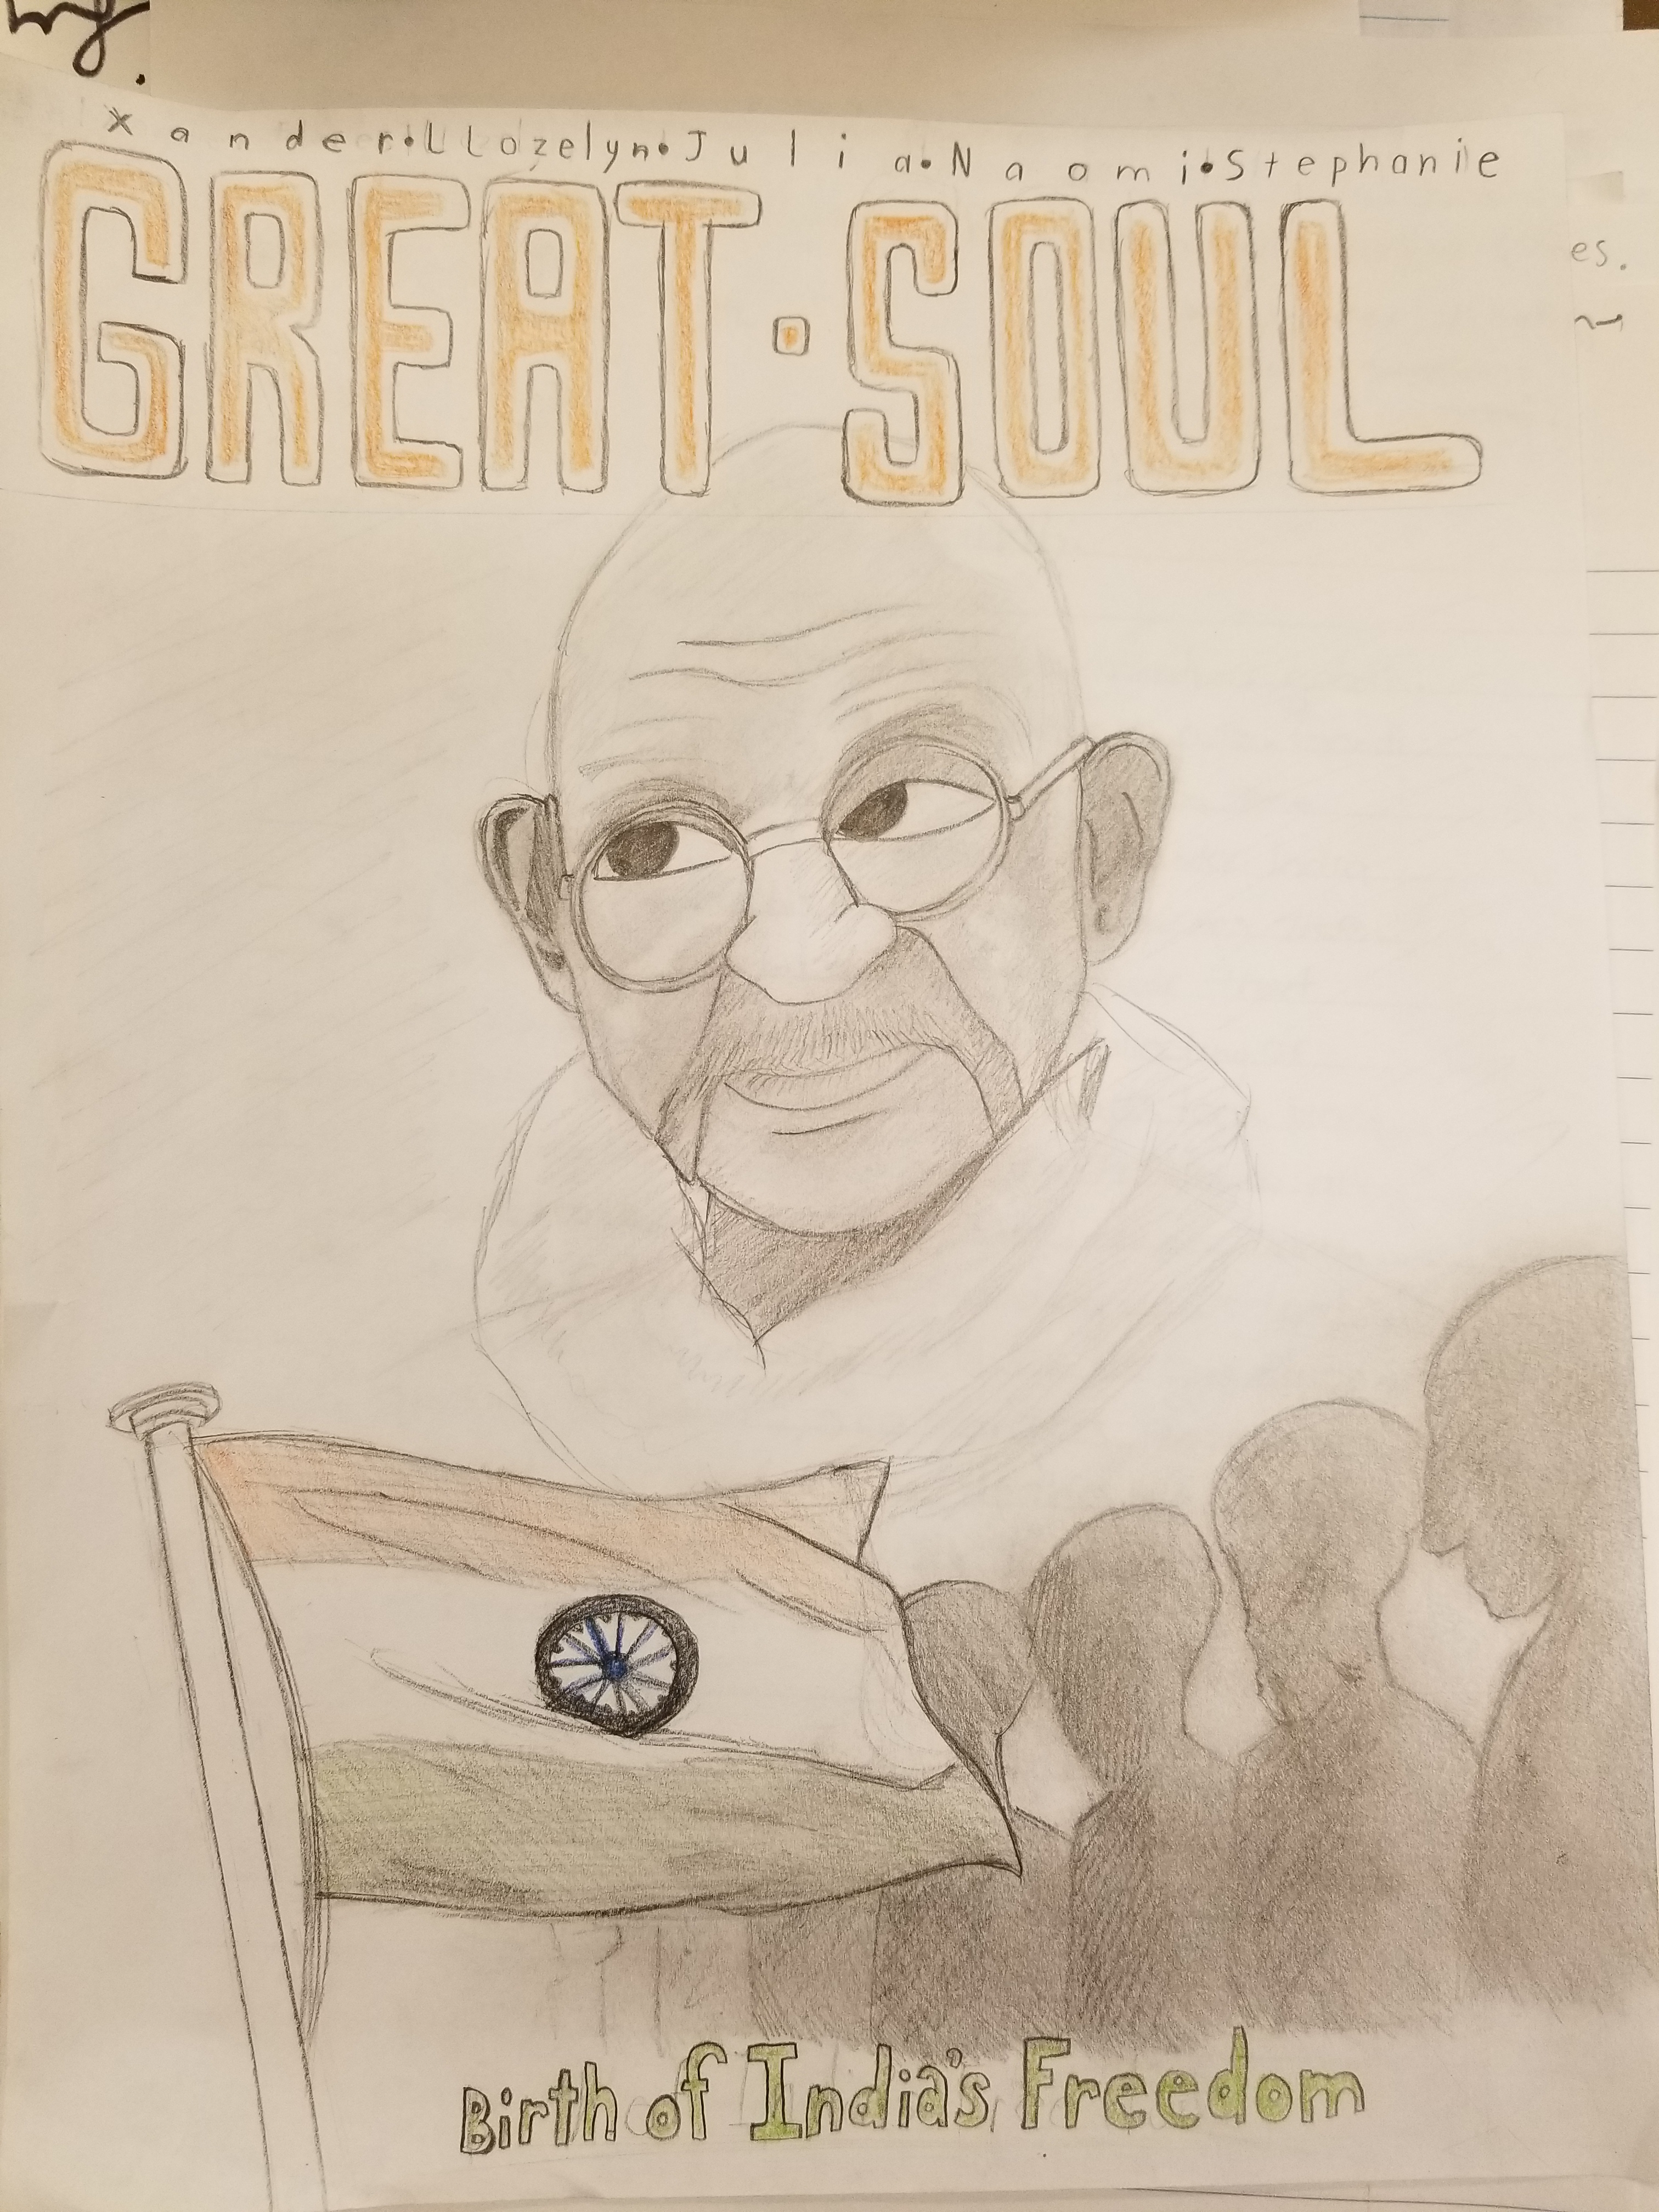 Xander•LLozelyn•Julia•Naomi•Stephanie
GREAT·SOUL
es.
Birth of India's Freedom